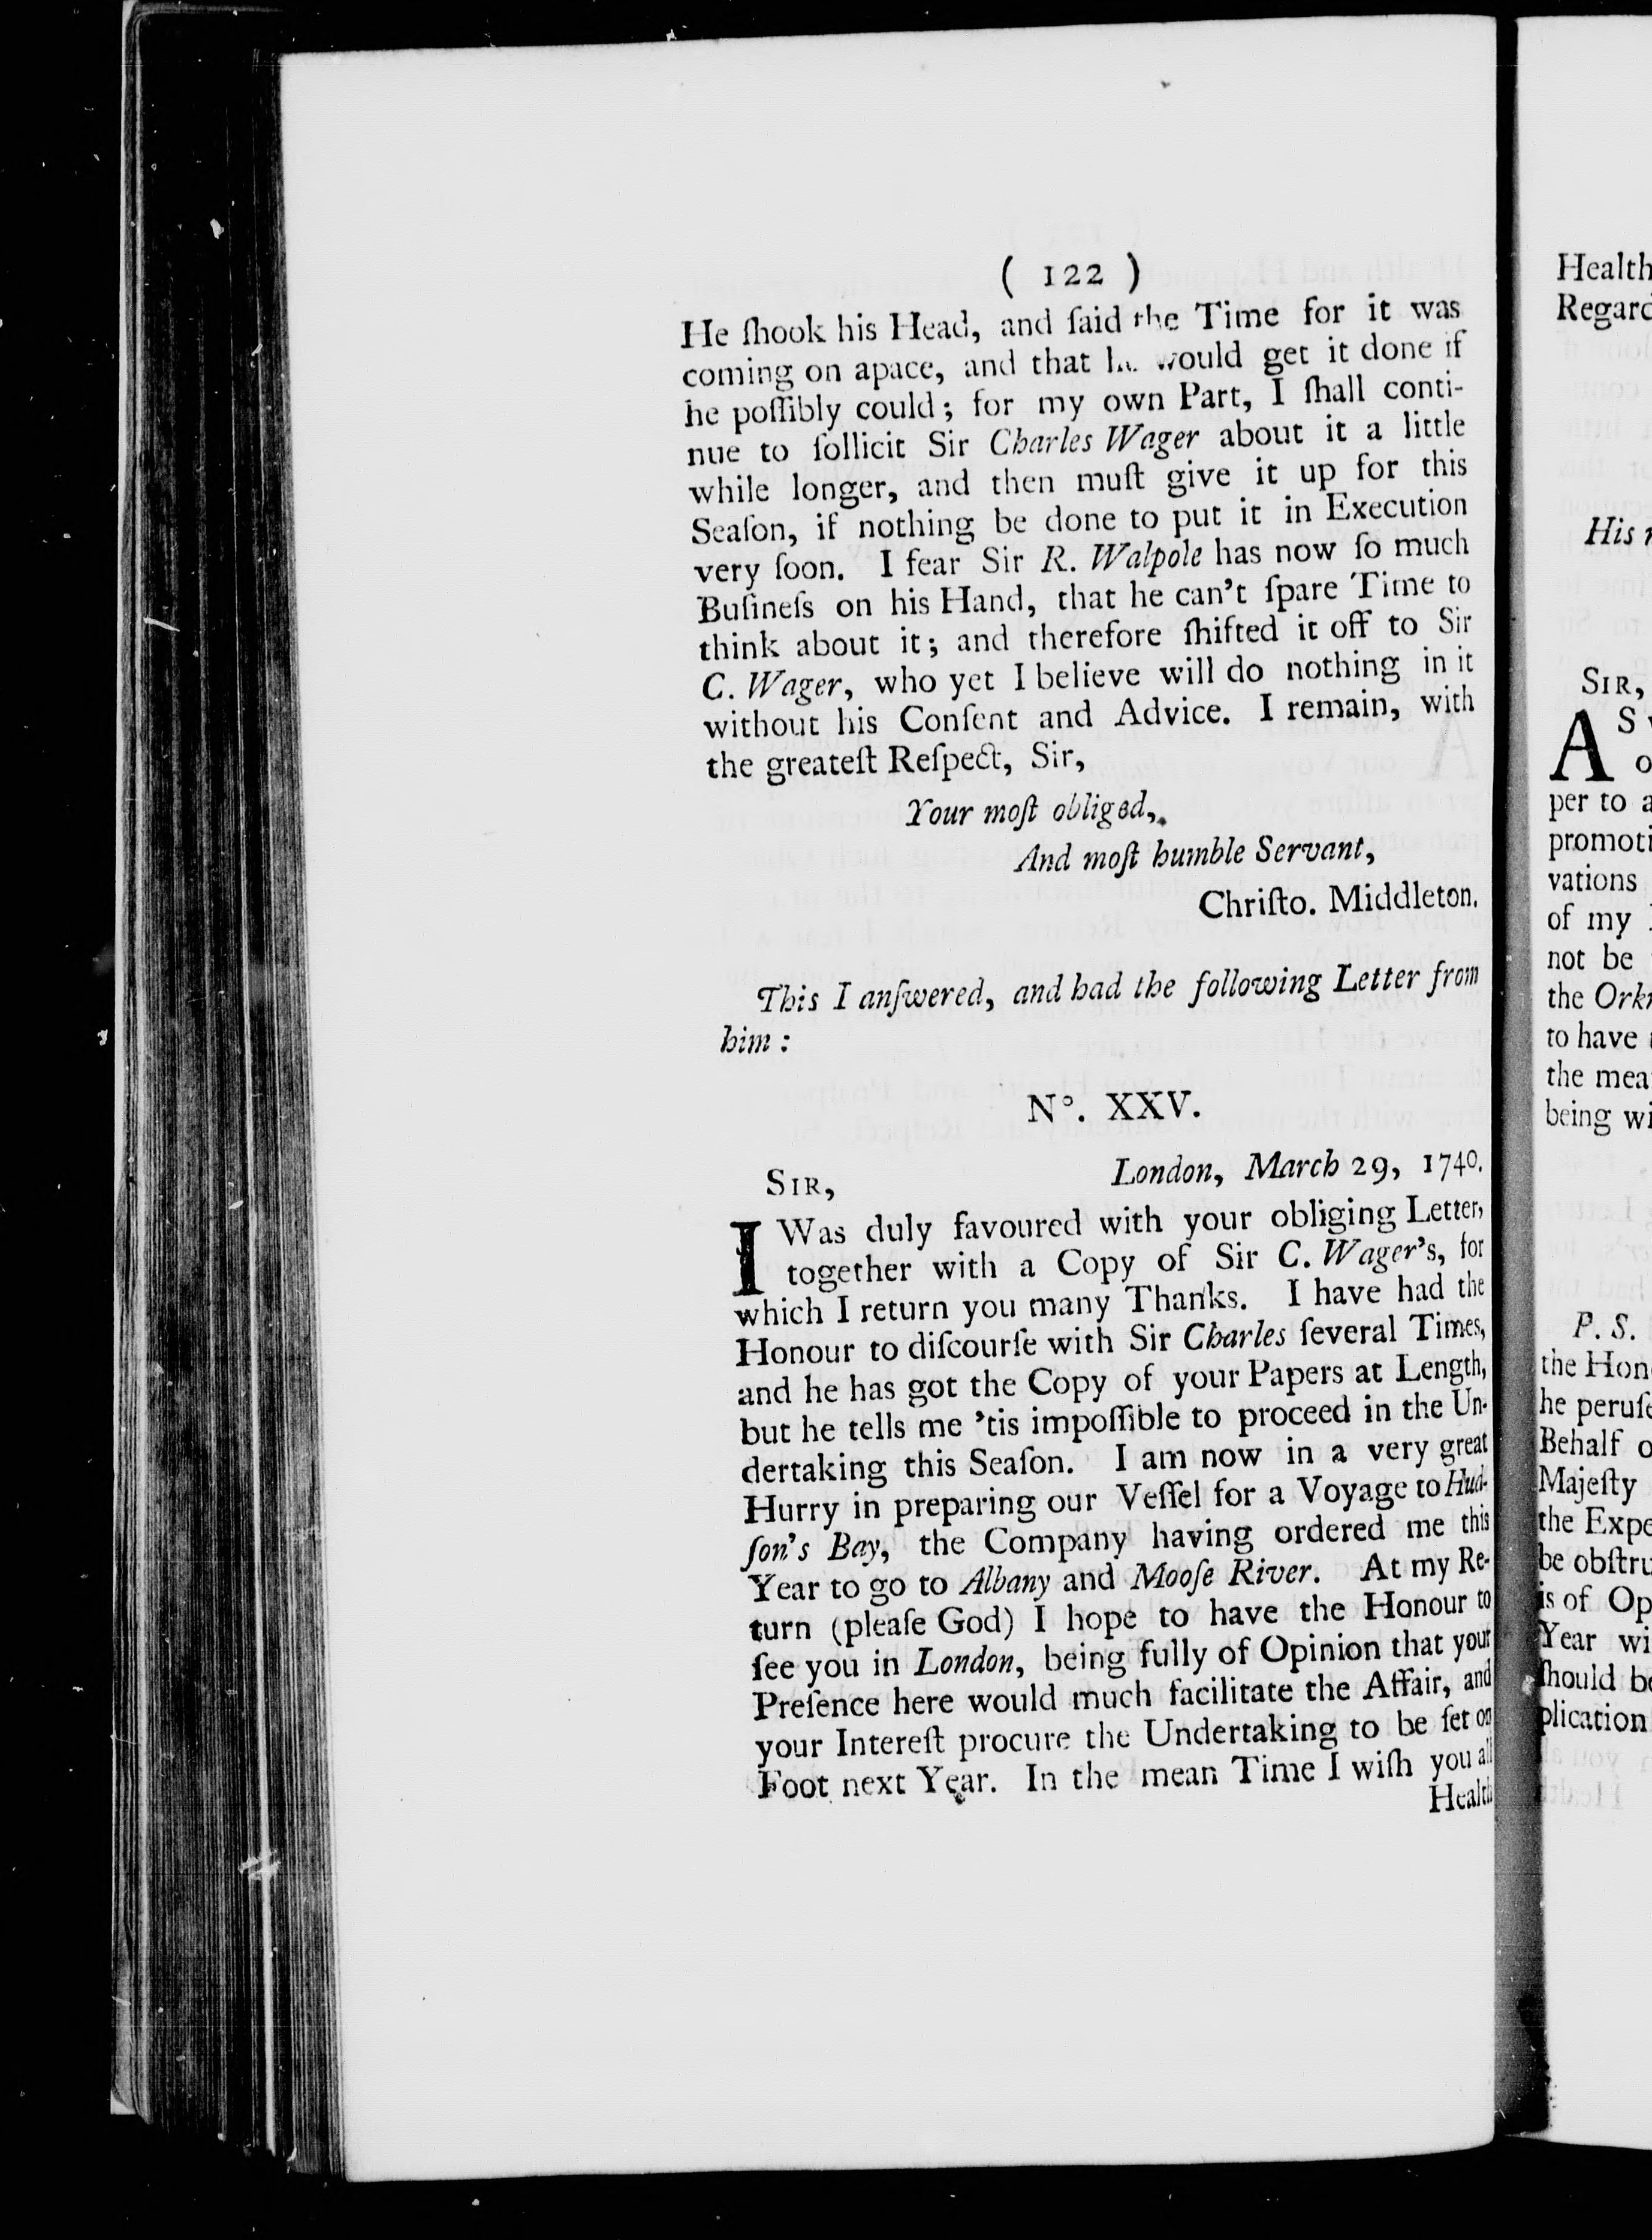 ( 122 )
He ſhook his Head, and ſaid the Time for it was
coming on apace, and that he would get it done if
he poſſibly could; for my own Part, I ſhall conti-
nue to ſollicit Sir Charles Wager about it a little
while longer, and then muſt give it up for this
Seaſon, if nothing be done to put it in Execution
very ſoon. I fear Sir R. Walpole has now ſo much
Buſineſs on his Hand, that he can't ſpare Time to
think about it; and therefore ſhifted it off to Sir
C. Wager, who yet I believe will do nothing in it
without his Conſent and Advice. I remain, with
the greateſt Reſpect, Sir,
Your moſt obliged,
And moſt humble Servant,
Chriſto. Middleton.
This I anſwered, and had the following Letter from
him :
N°. XXV.
SIR,
London, March 29, 1740.
I Was duly favoured with your obliging Letter,
together with a Copy of Sir C. Wager's, for
which I return you many Thanks. I have had the
Honour to diſcourſe with Sir Charles ſeveral Times,
and he has got the Copy of your Papers at Length,
but he tells me 'tis impoſſible to proceed in the Un-
dertaking this Seaſon. I am now in a very great
Hurry in preparing our Veſſel for a Voyage to Hud-
ſon's Bay, the Company having ordered me this
Year to go to Albany and Mooſe River. At my Re-
turn (pleaſe God) I hope to have the Honour to
ſee you in London, being fully of Opinion that your
Preſence here would much facilitate the Affair, and
your Intereſt procure the Undertaking to be ſet on
Foot next Year. In the mean Time I wiſh you all
Health
Health
Regard
His
SIR,
A S
per to a
promoti
vations
of my
not be
the Ork
to have
the mea
being wi
P. S.
the Hon
he peruſe
Behalf o
Majeſty
the Expe
be obſtru
is of Op
Year wi
ſhould be
plication